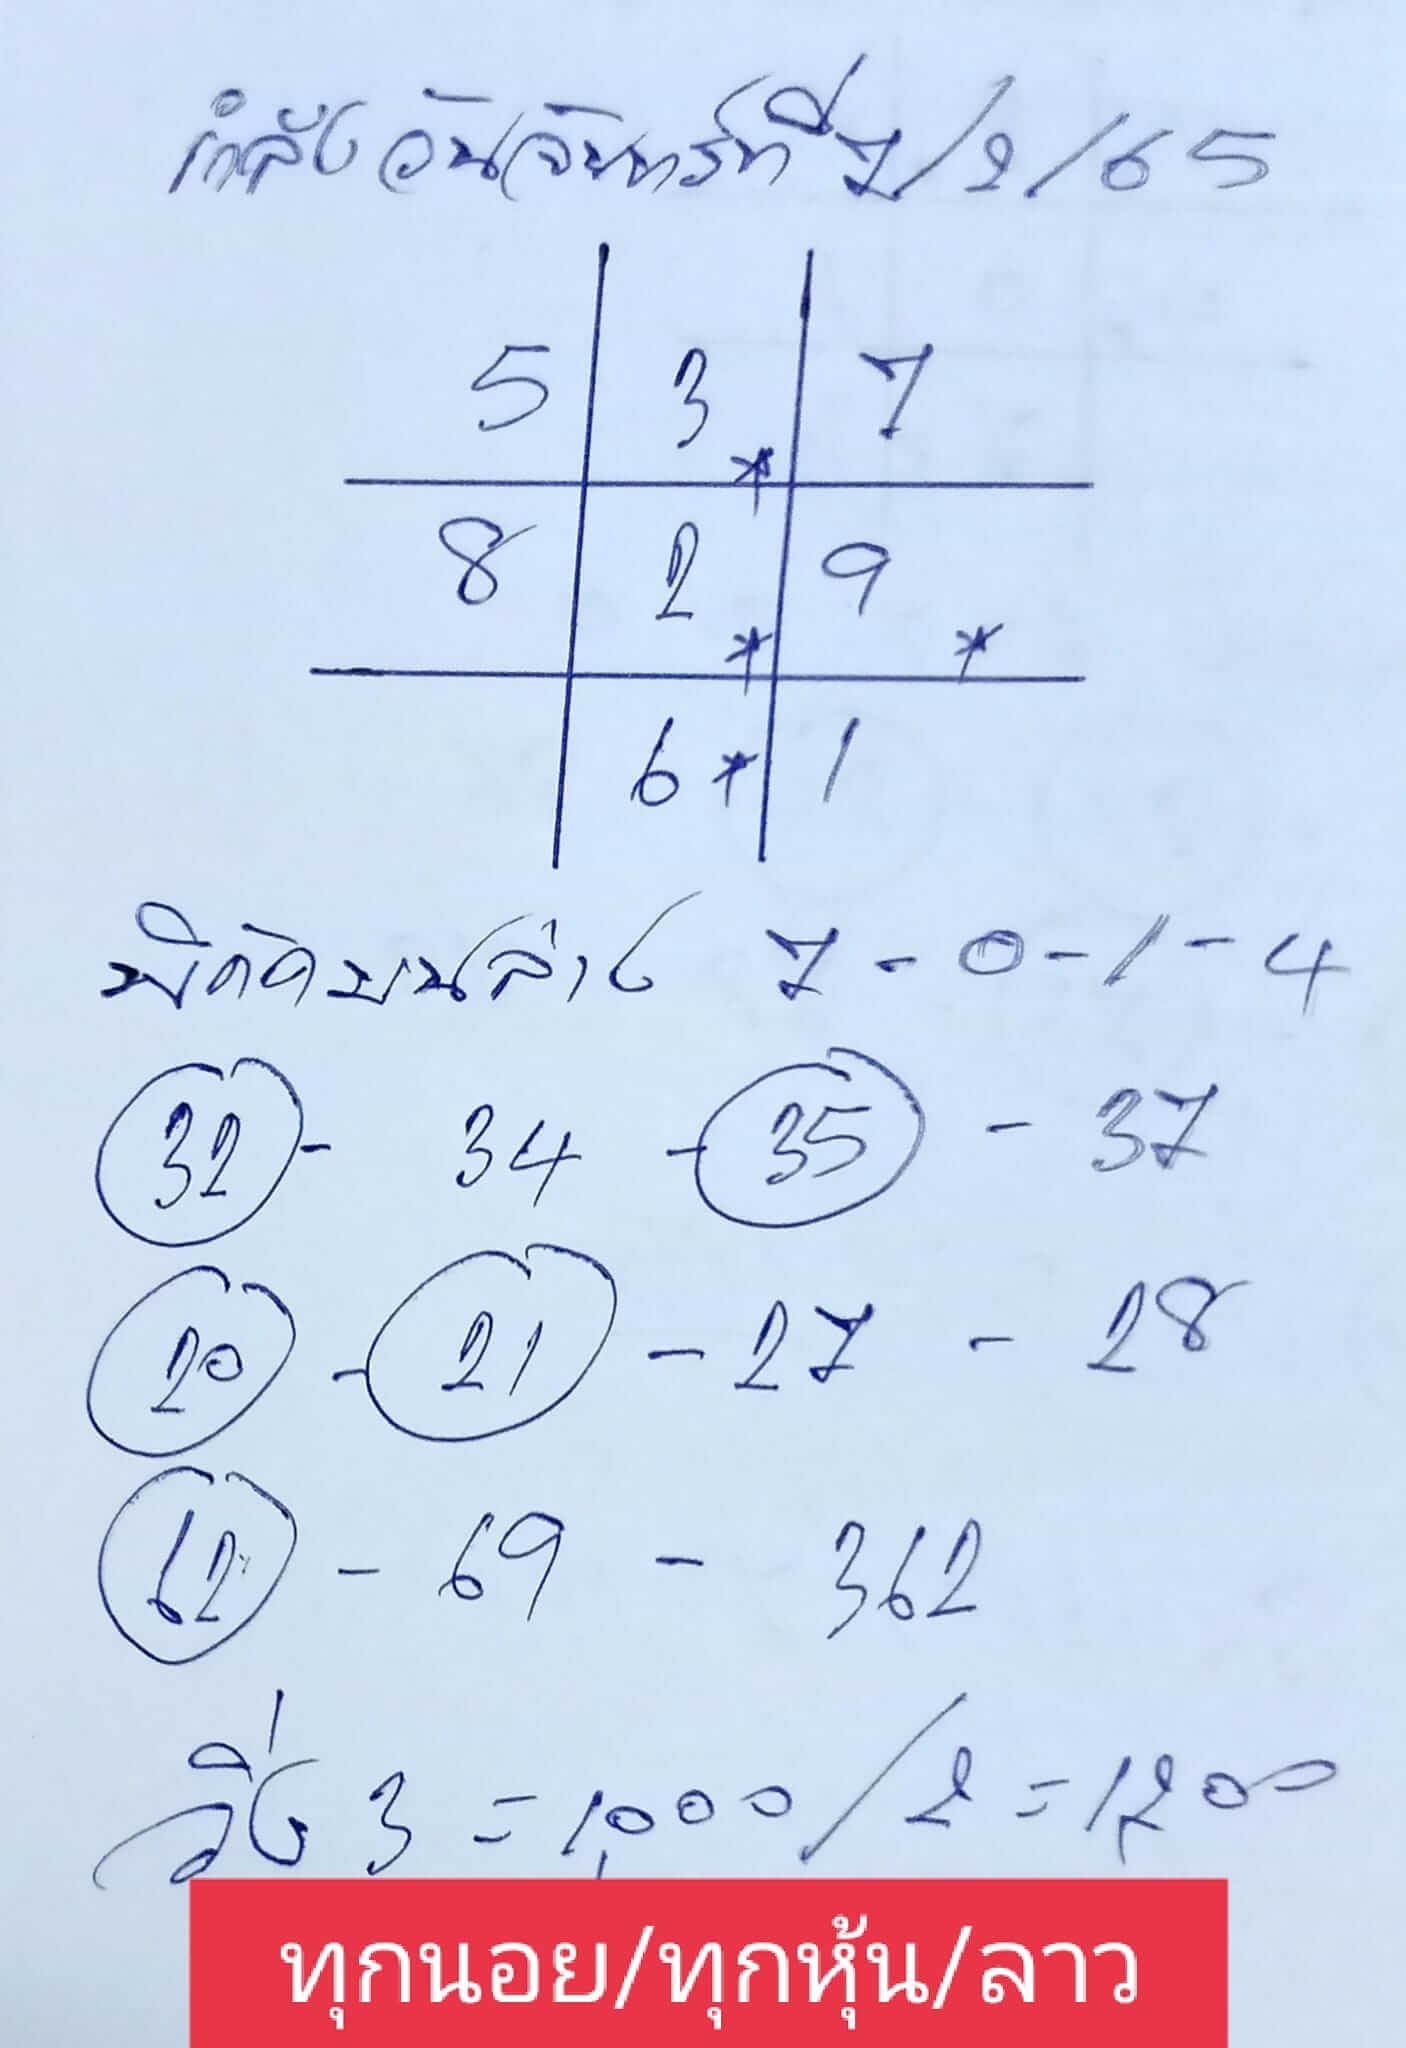 กำลังวันจันทร์ที่ 7/2/65
5 3 7
*
8 2 9
* *
6 * 1
พิกัดบนล่าง 7-0-1-4
32 - 34 - 35 - 37
20 - 21 - 27 - 28
62 - 69 - 362
วิ่ง 3 = 1,000 / 2 = 1200
ทุกนอย/ทุกหุ้น/ลาว